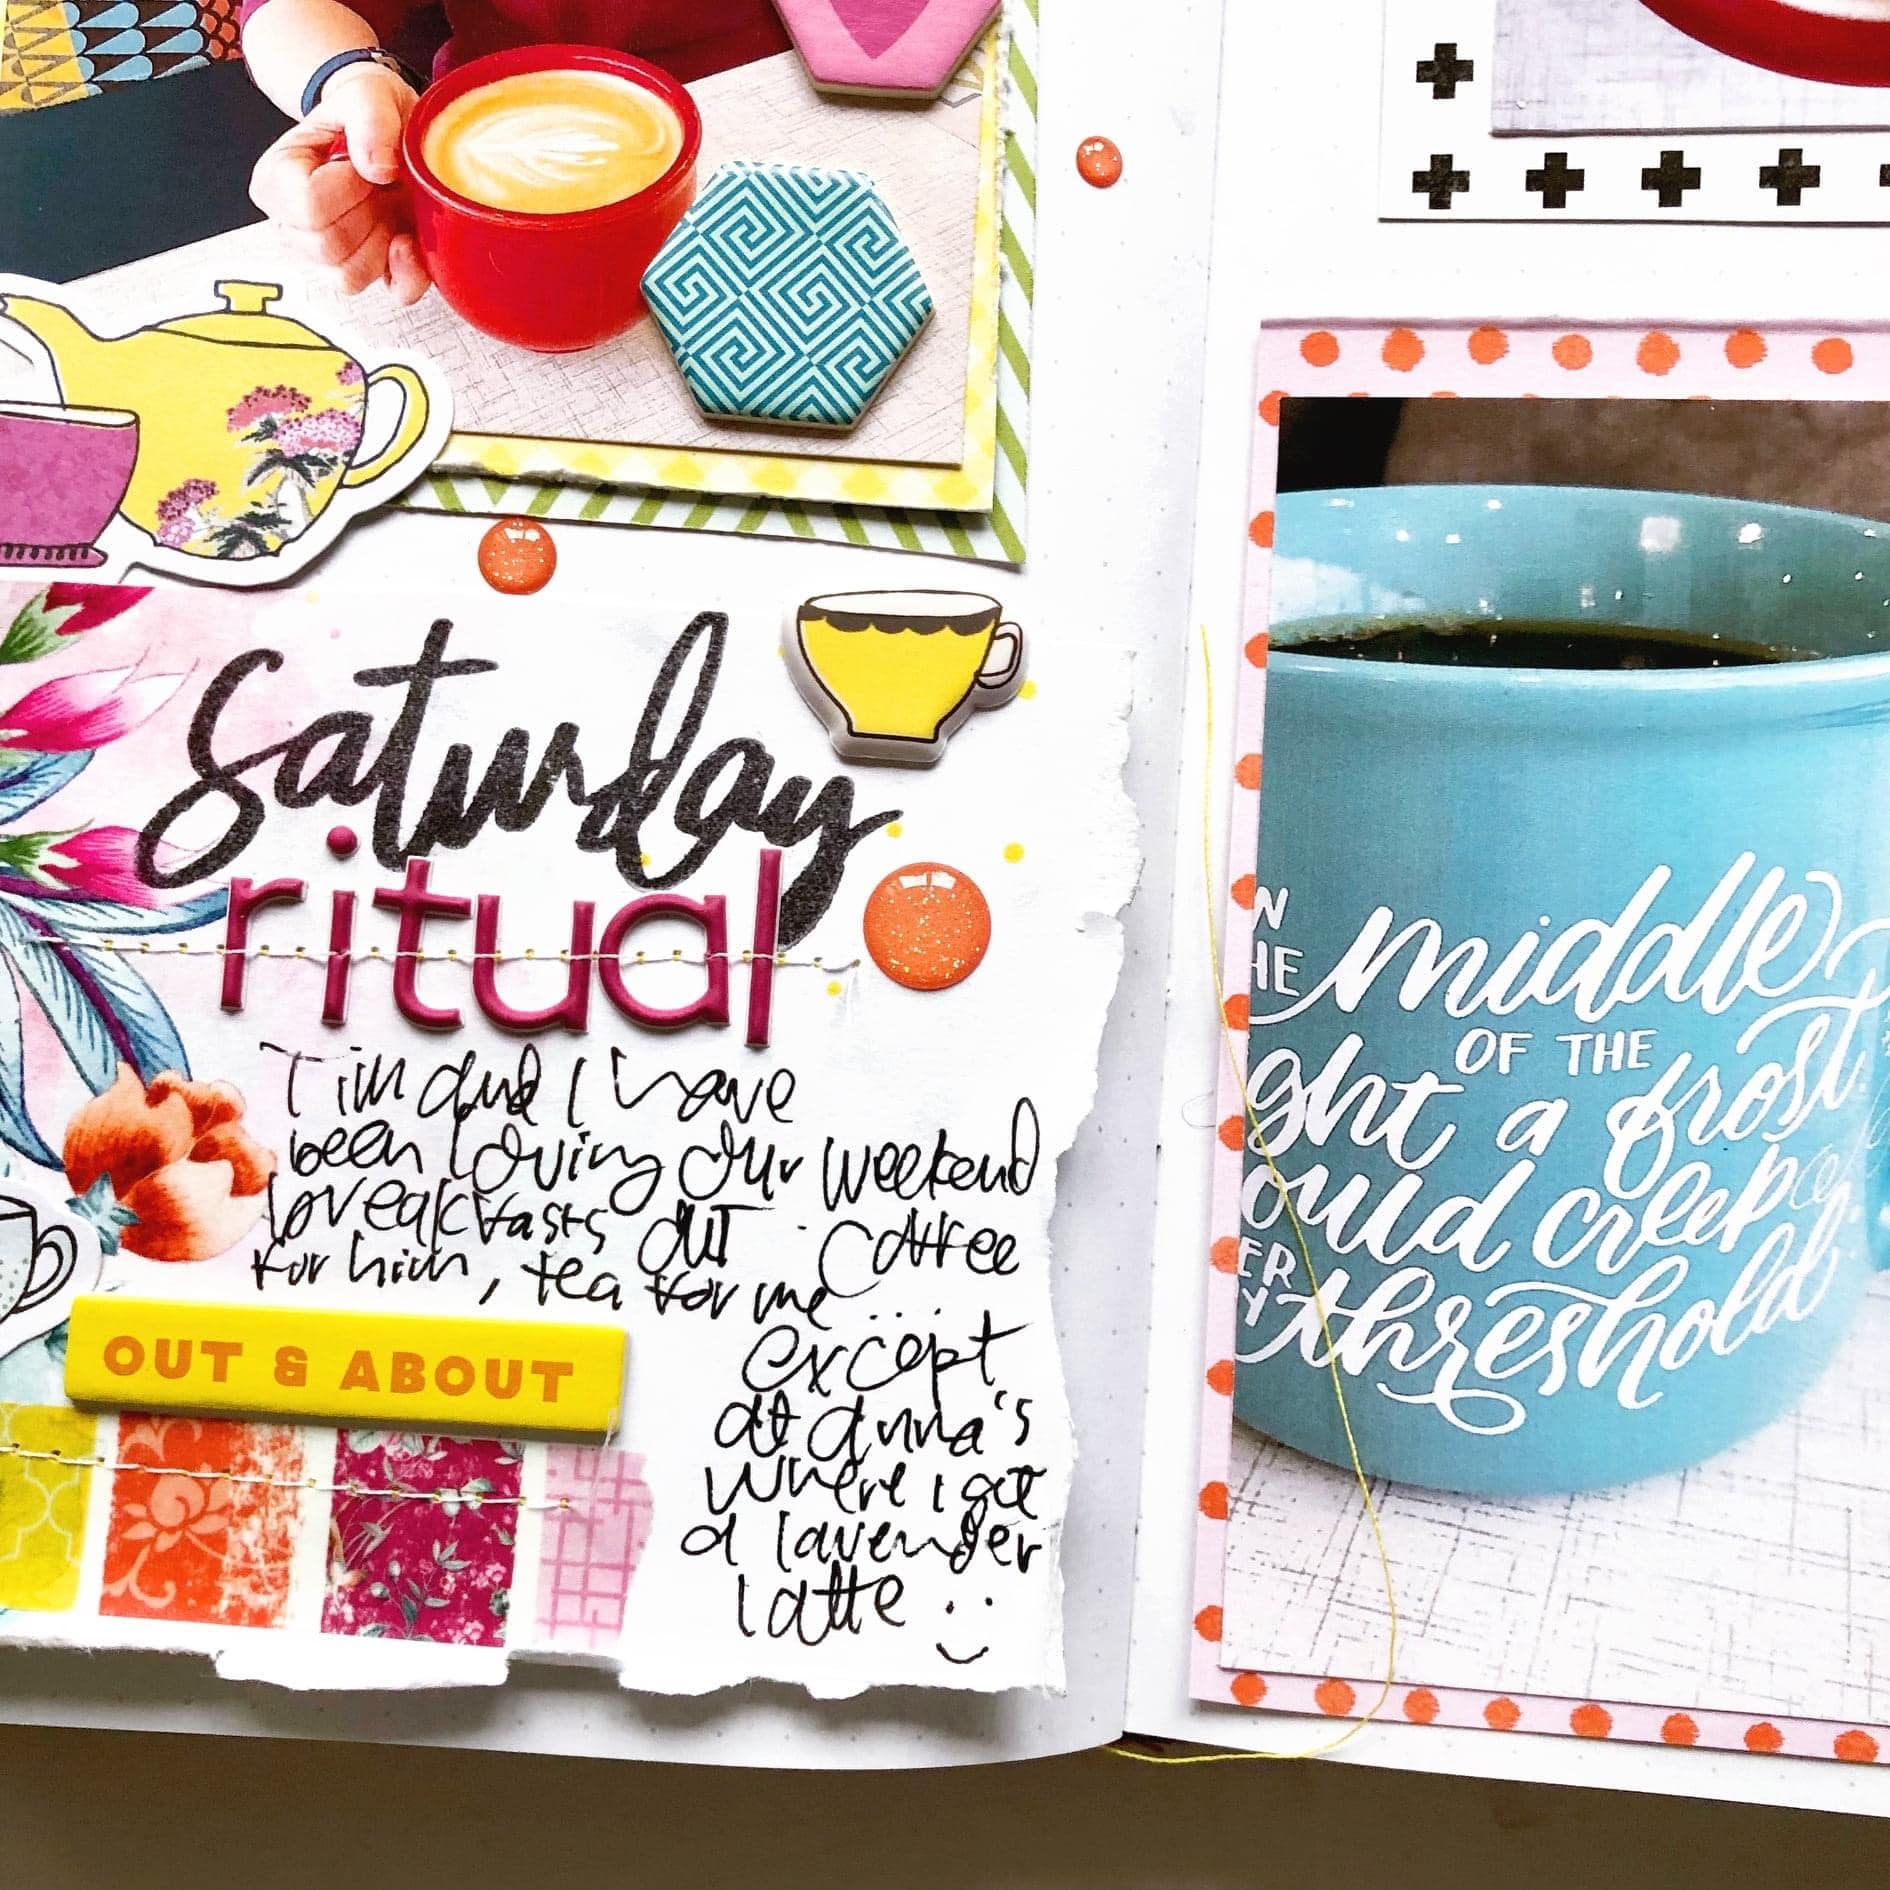 Saturday
ritual
Tim and I have
been loving our weekend
breakfasts out. Coffee
for him, tea for me...
except
at Anna's
where I got
a lavender
latte
OUT & ABOUT
N
HE middle
OF THE
ght a frost
ould creep
ER
Y threshold